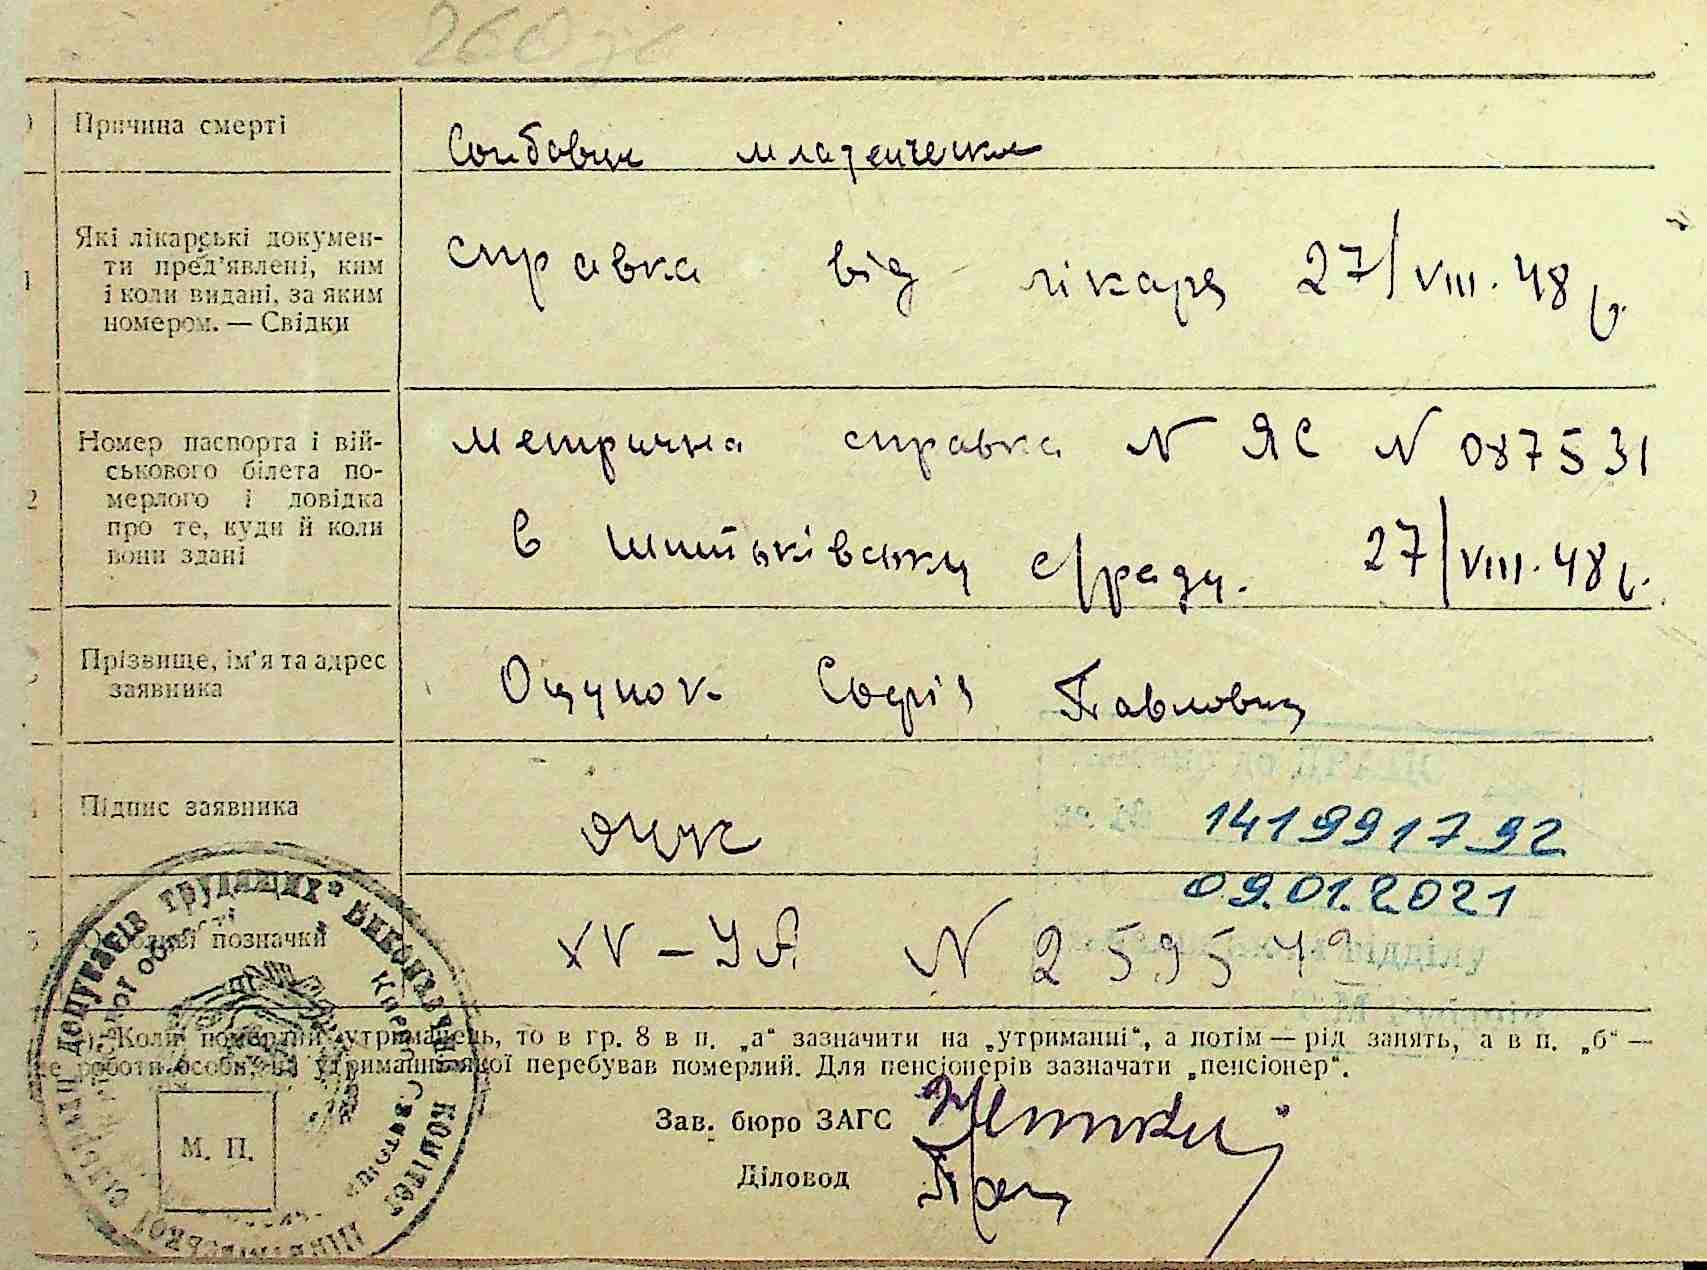 Причина смерті
младенческая
Які лікарські докумен-
ти пред'явлені, ким
і коли видані, за яким
номером. — Свідки
справка від лікаря 27/VIII.48 г.
Номер паспорта і вій-
ськового білета по-
мерлого і довідка
про те, куди й коли
вони здані
метрична справка N ЯС N 087531
в с/раду. 27/VIII.48 г.
Прізвище, ім'я та адрес
заявника
Оцупок Софія Павловна
Підпис заявника
1419991792
09.01.2021
Особливі позначки
XV – УА N 259549
відділу
Коли померлий утриманець, то в гр. 8 в п. „а“ зазначити на „утриманні“, а потім — рід занять, а в п. „б“ —
роботи особи, на утриманні якої перебував померлий. Для пенсіонерів зазначати „пенсіонер“.
Зав. бюро ЗАГС
Діловод
М. П.
депутатів трудящих виконавчий комітет